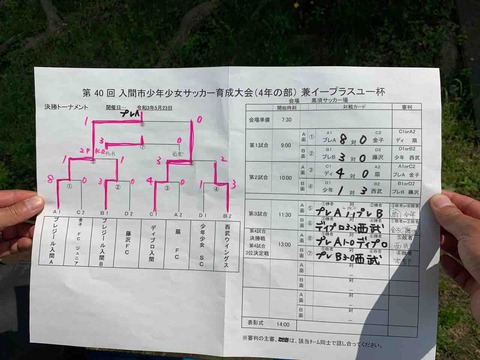 第 40 回 入間市少年少女サッカー育成大会(4年の部) 兼イープラスユー杯
決勝トーナメント 開催日 令和3年5月23日
会場 高須サッカー場
プレA
1 0
3 0
2 1 1 3 3 2
8 0 3 0 4 0 1 3
① ② ③ ④
A1 C2 B1 D2 C1 A2 D1 B2
プレジール入間A
金子FCジュニア
プレジール入間B
藤沢FC
ディプロ入間
扇FC
少年少女SC
西武ウイングス
開始時刻 対戦カード 審判
会場準備 7:30
第1試合 9:00
A面 ① A1 プレA 8 対 0 C2 金子 D1orA2 ディ 扇
B面 ② B1 プレB 3 対 0 D2 藤沢 D1orB2 少年 西武
第2試合 10:00
A面 ③ C1 ディ 4 対 0 A2 扇 A1orC2 プレA 金子
B面 ④ D1 少年 1 対 3 B2 西武 B1orD2 プレB 藤沢
第3試合 11:30
プレA 1-1 プレB
ディプロ 3-2 西武
決勝戦 13:00
プレA 1-0 ディプロ
3位決定戦
プレB 3-0 西武
表彰式 14:00
※審判の主審、副審は、該当チーム同士で話し合ってください。